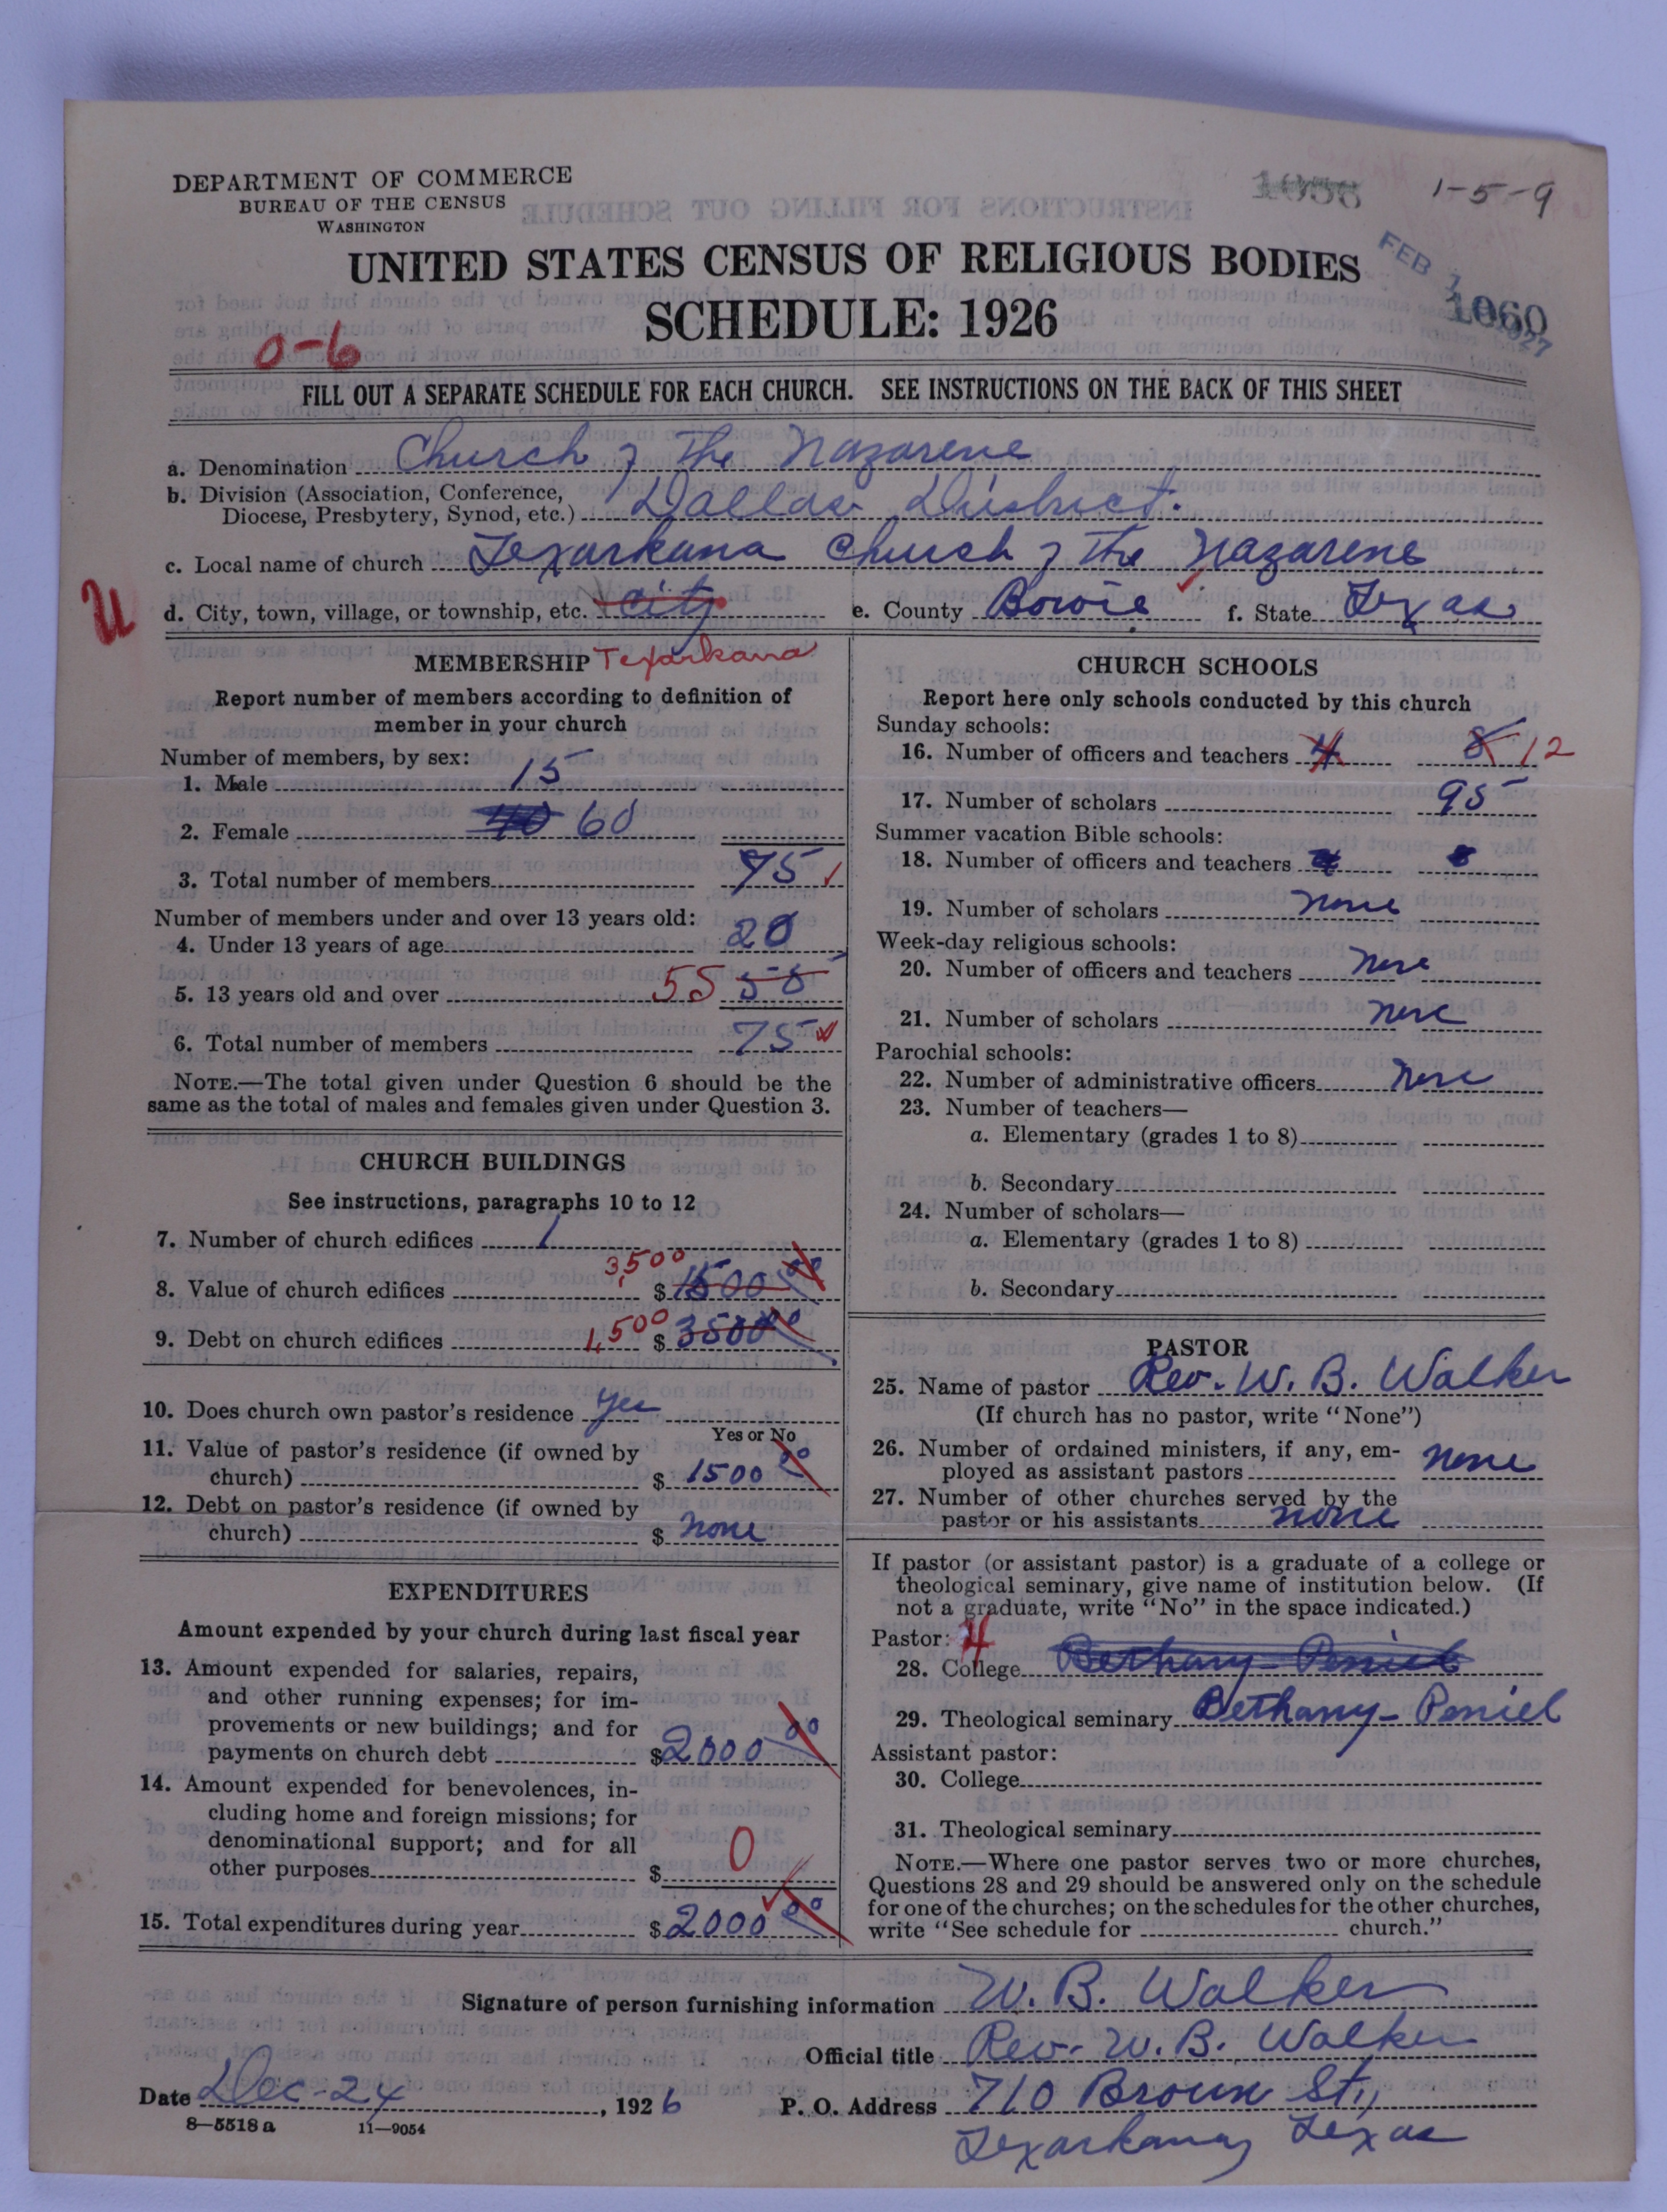 DEPARTMENT OF COMMERCE
BUREAU OF THE CENSUS
WASHINGTON
1-5-9
UNITED STATES CENSUS OF RELIGIOUS BODIES
SCHEDULE: 1926
FEB 1927
1060
0-6
FILL OUT A SEPARATE SCHEDULE FOR EACH CHURCH. SEE INSTRUCTIONS ON THE BACK OF THIS SHEET
a. Denomination Church of the Nazarene
b. Division (Association, Conference,
Diocese, Presbytery, Synod, etc.) Dallas District.
c. Local name of church Texarkana Church of the Nazarene
U
d. City, town, village, or township, etc. City e. County Bowie f. State Texas
MEMBERSHIP Texarkana
Report number of members according to definition of
member in your church
Number of members, by sex:
1. Male 15
2. Female 40 60
3. Total number of members 75
Number of members under and over 13 years old:
4. Under 13 years of age 20
5. 13 years old and over 55 55
6. Total number of members 75
NOTE.—The total given under Question 6 should be the
same as the total of males and females given under Question 3.
CHURCH BUILDINGS
See instructions, paragraphs 10 to 12
7. Number of church edifices 1
3,500
8. Value of church edifices $ 1500 00
9. Debt on church edifices 1,500 $ 3500 00
10. Does church own pastor's residence yes
Yes or No
11. Value of pastor's residence (if owned by
church) $ 1500 00
12. Debt on pastor's residence (if owned by
church) $ none
EXPENDITURES
Amount expended by your church during last fiscal year
13. Amount expended for salaries, repairs,
and other running expenses; for im-
provements or new buildings; and for
payments on church debt $ 2000 00
14. Amount expended for benevolences, in-
cluding home and foreign missions; for
denominational support; and for all
other purposes $ 0
15. Total expenditures during year $ 2000 00
CHURCH SCHOOLS
Report here only schools conducted by this church
Sunday schools:
16. Number of officers and teachers 4 8 12
17. Number of scholars 95
Summer vacation Bible schools:
18. Number of officers and teachers
19. Number of scholars none
Week-day religious schools:
20. Number of officers and teachers none
21. Number of scholars none
Parochial schools:
22. Number of administrative officers none
23. Number of teachers—
a. Elementary (grades 1 to 8)
b. Secondary
24. Number of scholars—
a. Elementary (grades 1 to 8)
b. Secondary
PASTOR
25. Name of pastor Rev. W. B. Walker
(If church has no pastor, write "None")
26. Number of ordained ministers, if any, em-
ployed as assistant pastors none
27. Number of other churches served by the
pastor or his assistants none
If pastor (or assistant pastor) is a graduate of a college or
theological seminary, give name of institution below. (If
not a graduate, write "No" in the space indicated.)
Pastor: 4
28. College Bethany-Peniel
29. Theological seminary Bethany-Peniel
Assistant pastor:
30. College
31. Theological seminary
NOTE.—Where one pastor serves two or more churches,
Questions 28 and 29 should be answered only on the schedule
for one of the churches; on the schedules for the other churches,
write "See schedule for church."
Signature of person furnishing information W. B. Walker
Official title Rev. W. B. Walker
Date Dec-24, 1926 P. O. Address 710 Broun St,
8—5518 a 11—9054
Texarkana, Texas